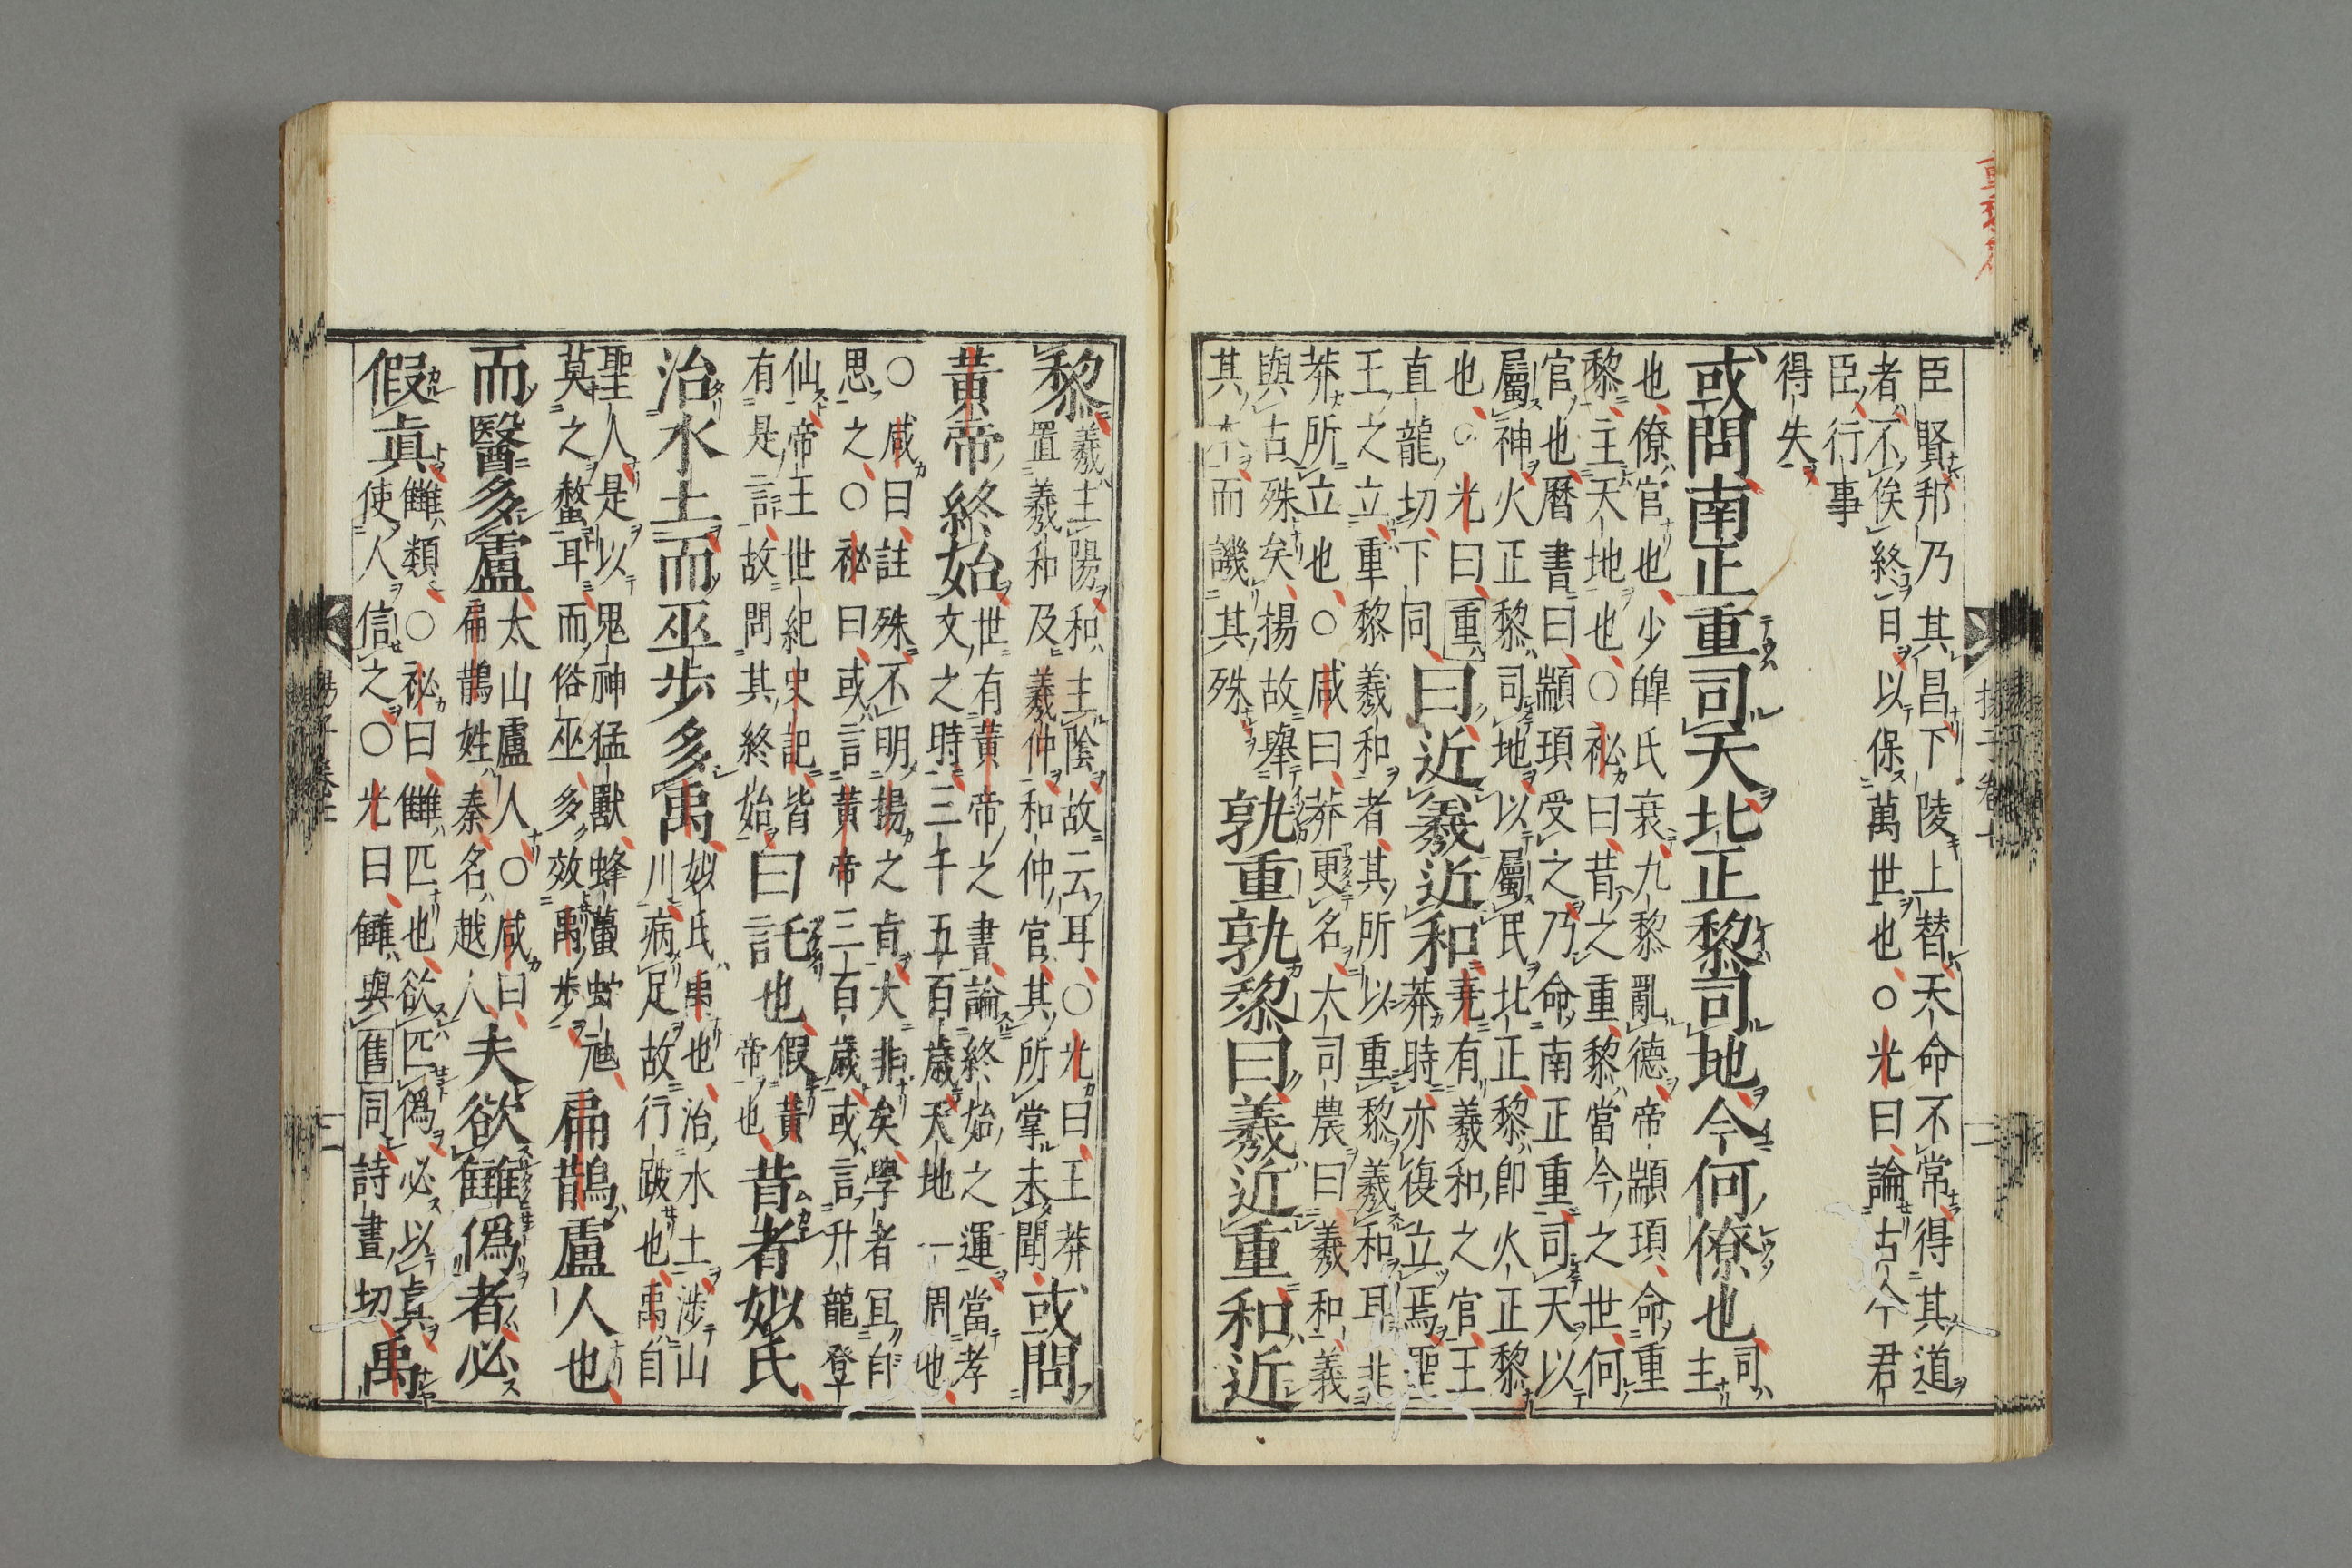 臣賢邦乃其昌下陵上替天命不常得其道
者不俟終日以保萬世也○光曰論古今君
臣行事
得失
或問南正重司天北正黎司地今何僚也司
主
也僚官也少皥氏衰九黎亂德帝顓頊命重
黎主天地也○祕曰昔之重黎當今之世何
官也曆書曰顓頊受之乃命南正重司天以
屬神火正黎司地以屬民北正黎卽火正黎
也○光曰重
直龍切下同
曰近羲近和
堯有羲和之官王
莽時亦復立焉聖
王之立重黎羲和者其所以重黎羲和耳非
莽所立也○咸曰莽更名大司農曰羲和義
與古殊矣揚故舉
其本而譏其殊
孰重孰黎曰羲近重和近
黎
羲主陽和主陰故云耳○光曰王莽
置羲和及羲仲和仲官其所掌未聞
或問
黃帝終始
世有黃帝之書論終始之運當孝
文之時三千五百歲天地一周也
○咸曰註殊不明揚之肯大非矣學者冝自
思之○祕曰或言黃帝三百歲或言升龍登
仙帝王世紀史記皆
有是言故問其終始
曰託也
假黃
帝也
昔者姒氏
治水土而巫步多禹
姒氏禹也治水土涉山
川病足故行跛也禹自
聖人是以鬼神猛獸蜂蠆蛇虺
莫之螫耳而俗巫多效禹步
扁鵲盧人也
而醫多盧
太山盧人○咸曰
扁鵲姓秦名越人
夫欲讎僞者必
假眞
讎類○祕曰讎匹也欲匹僞必以眞
使人信之○光曰讎與售同詩晝切
禹